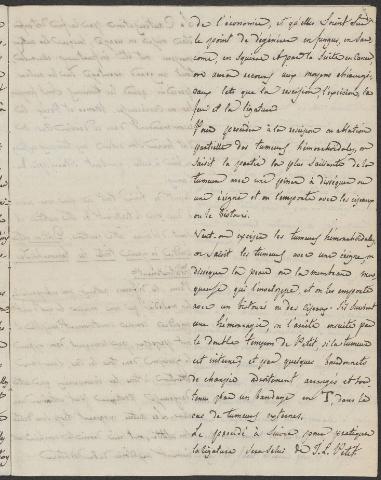 de l'économie, et qu'elles soient sur
le point de dégénérer en fungus, en sar
come, en squirre et par la suite en cancer
on aura recours aux moyens chirurgi
caux tels que la rescision, l'excision, le
feu et la ligature
Pour procéder à la rescision ou ablation
partielle des tumeurs hémorrhoïdales, on
saisit la partie la plus saillante de la
tumeur avec une pince à disséquer ou
une érigne et on l'emporte avec les ciseaux
ou le bistouri.
Veut-on exciser les tumeurs hémorrhoïdales,
on saisit les tumeurs avec une érigne, on
dissèque la peau ou la membrane mu
queuse qui l'enveloppe, et on les emporte
avec un bistouri ou des ciseaux. S'il survient
une hémorragie, on l'arrête ensuite par
le double tampon de Petit, si la tumeur
est interne, et par quelques bourdonnets
de charpie adroitement arrangés et sou
tenus par un bandage en T, dans le
cas de tumeurs externes.
Le procédé à suivre pour pratiquer
la ligature, sera celui de J. L. Petit.